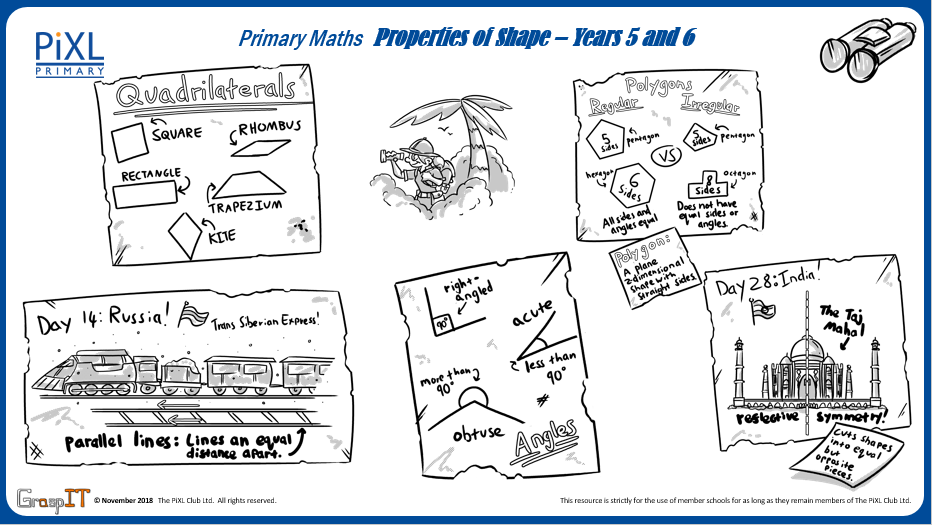 PiXL
PRIMARY
Primary Maths Properties of Shape – Years 5 and 6
Quadrilaterals
SQUARE
RHOMBUS
RECTANGLE
TRAPEZIUM
KITE
Polygons
Regular
Irregular
5
sides
pentagon
VS
5
sides
pentagon
hexagon
6
Sides
octagon
8
Sides
All sides and
angles equal
Does not have
equal sides or
angles.
Polygon:
A plane
2-dimensional
shape with
straight sides.
Day 14: Russia!
Trans Siberian Express!
parallel lines: Lines an equal
distance apart.
right-
angled
90°
acute
less than
90°
more than
90°
obtuse
Angles
Day 28: India!
The Taj
Mahal
reflective symmetry!
Cuts shapes
into equal
but
opposite
pieces.
GraspIT
© November 2018 The PiXL Club Ltd. All rights reserved.
This resource is strictly for the use of member schools for as long as they remain members of The PiXL Club Ltd.